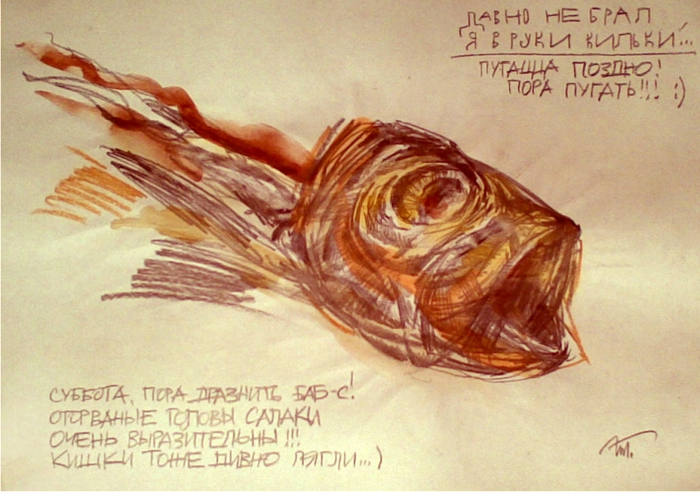 ДАВНО НЕ БРАЛ
Я В РУКИ КИЛЬКИ...
ПУГАЦЦА ПОЗДНО!
ПОРА ПУГАТЬ!!! :)
СУББОТА, ПОРА ДРАЗНИТЬ БАБ-С!
ОТОРВАНЫЕ ГОЛОВЫ САЛАКИ
ОЧЕНЬ ВЫРАЗИТЕЛЬНЫ!!!
КИШКИ ТОЖЕ ДИВНО ЛЯГЛИ...)